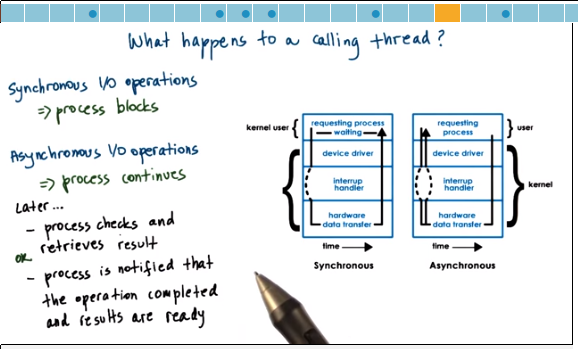 What happens to a calling thread?
Synchronous I/O operations
=> process blocks
Asynchronous I/O operations
=> process continues
Later...
- process checks and
retrieves result
OR
- process is notified that
the operation completed
and results are ready
kernel user
requesting process
waiting
device driver
interrup
handler
hardware
data transfer
time
Synchronous
requesting
process
device driver
interrup
handler
hardware
data transfer
time
Asynchronous
user
kernel